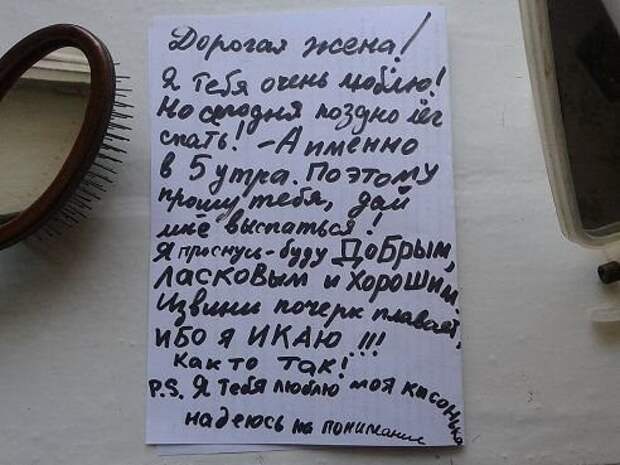 Дорогая жена!
Я тебя очень люблю!
Но сегодня поздно лёг
спать! - А именно
в 5 утра. Поэтому
прошу тебя, дай
мне выспаться!
Я проснусь - буду ДОБРЫМ,
ЛАСКОВЫМ и ХОРОШИМ.
Извини почерк плавает,
ИБО Я ИКАЮ!!!
Как то так!
P.S. Я тебя люблю моя кисонька
надеюсь на понимание